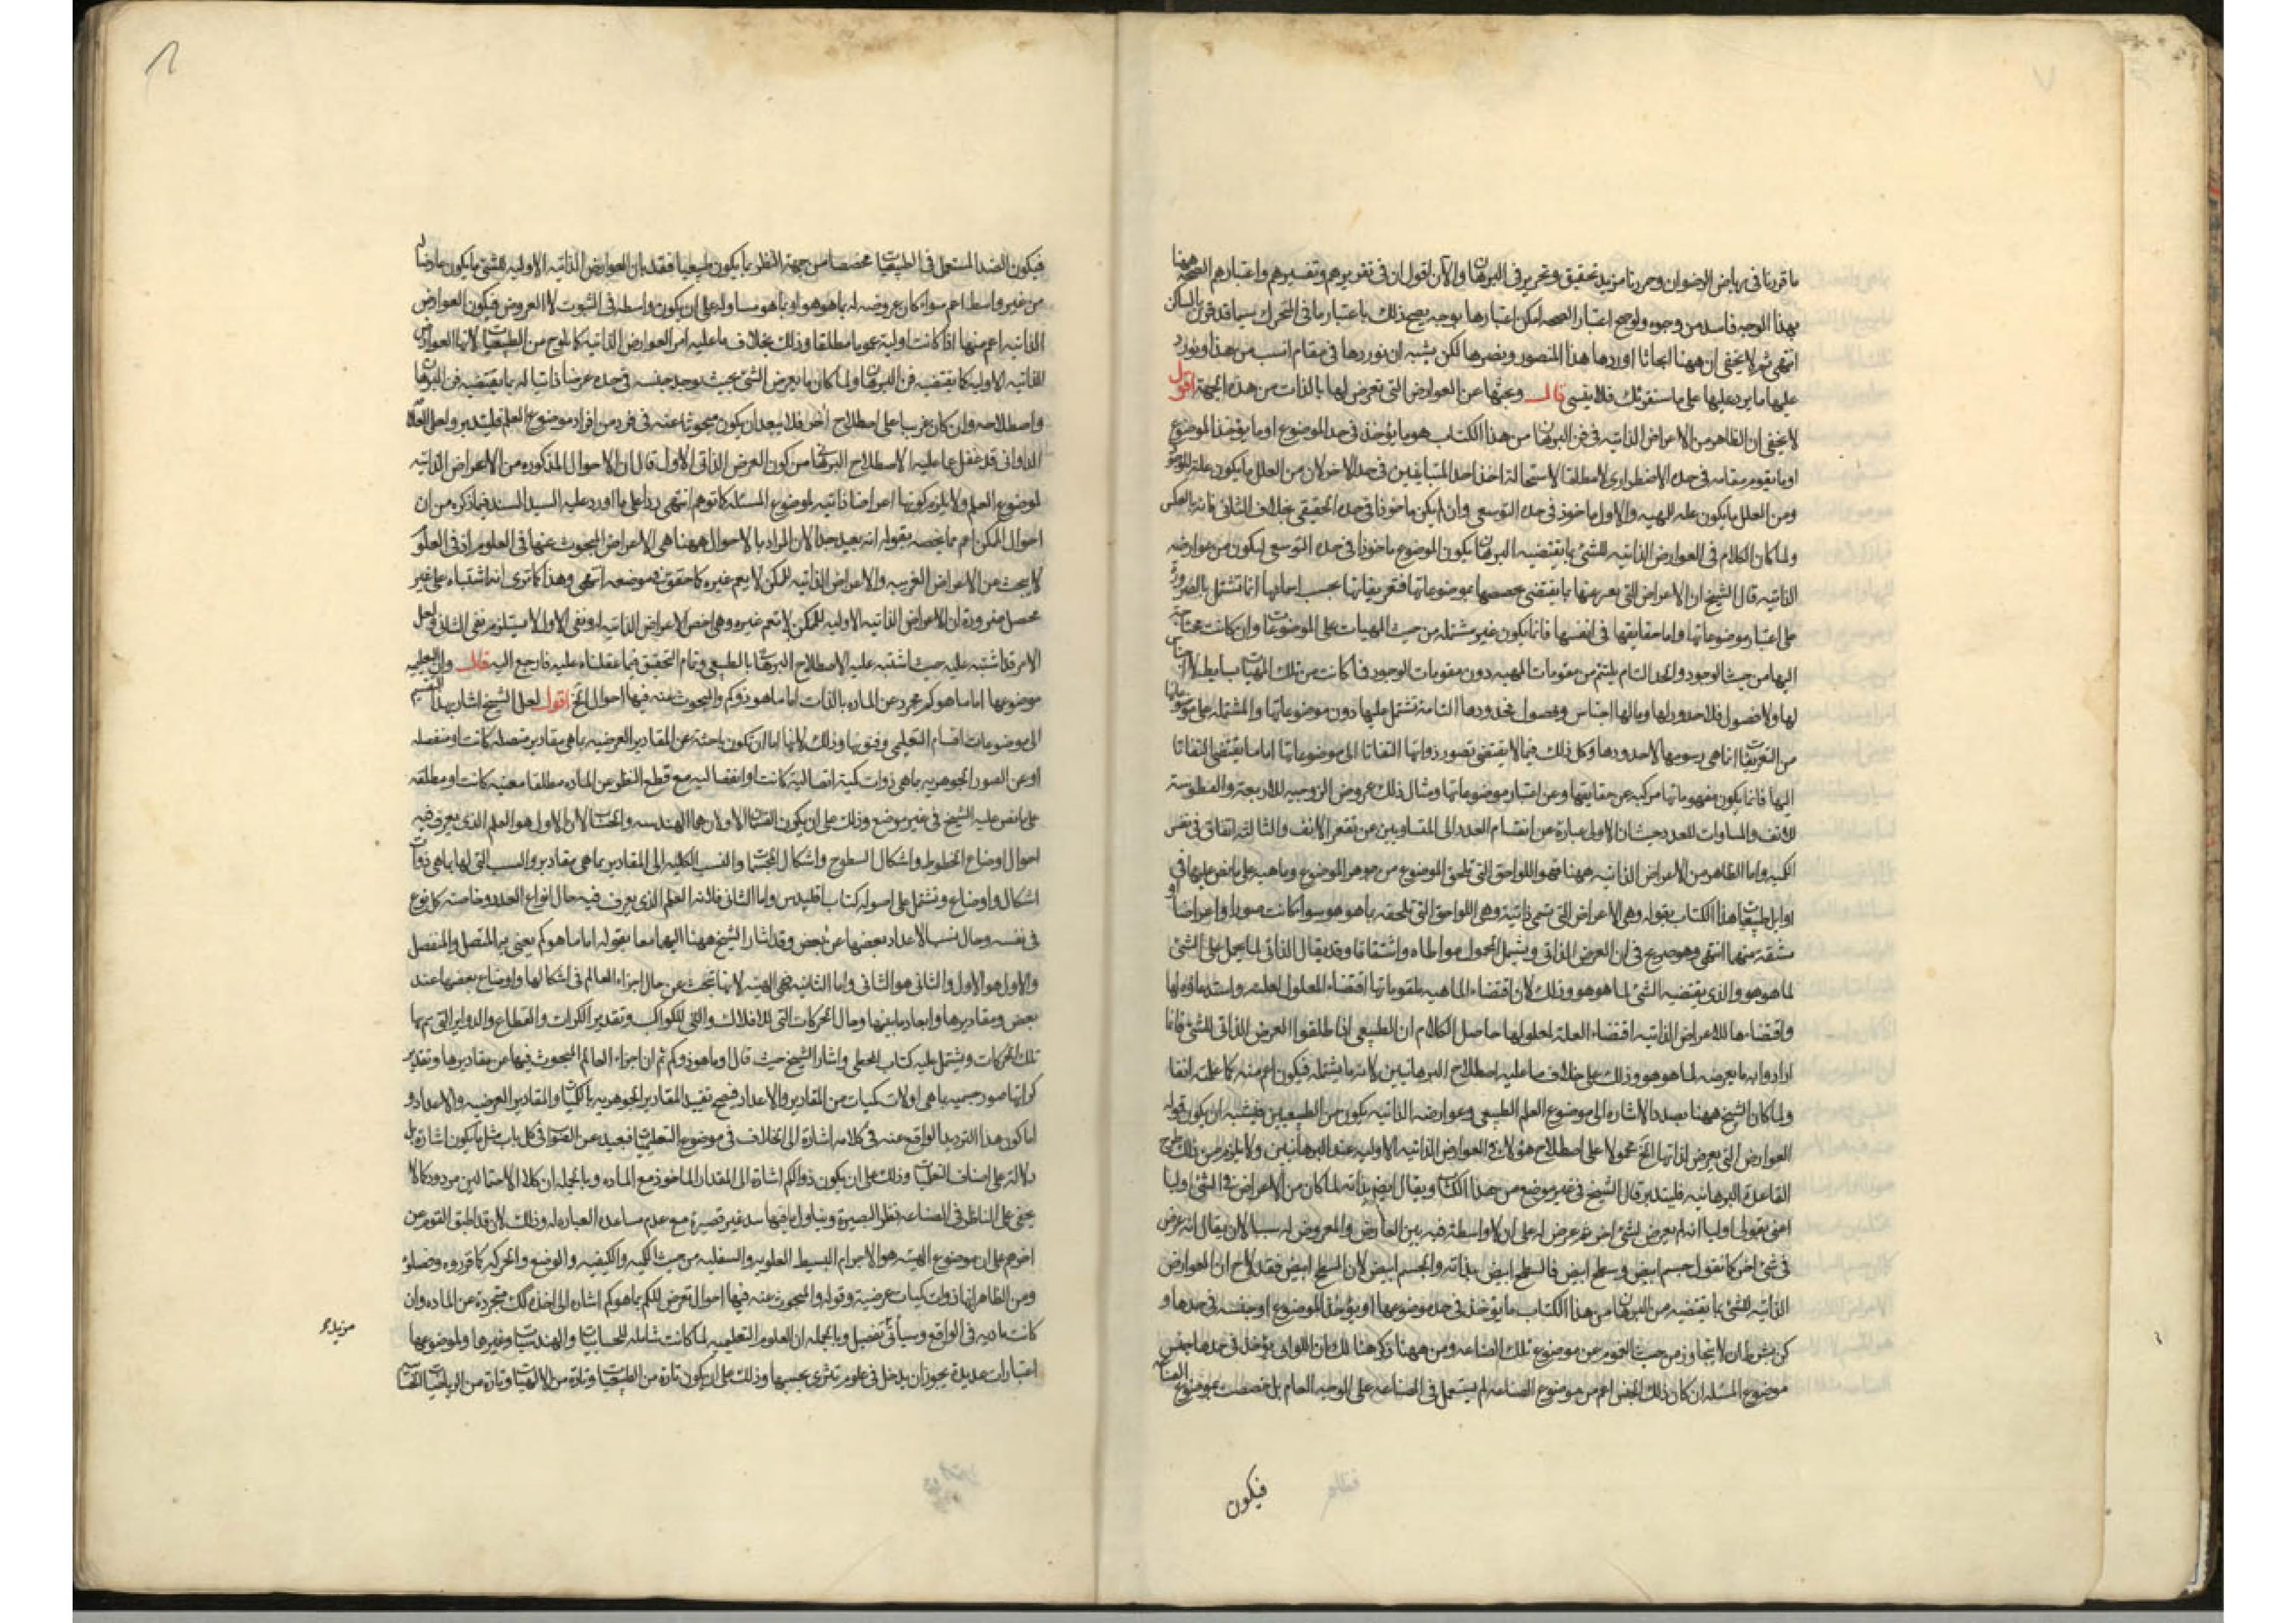 ما قررنا فى رياض الرضوان وحررنا مزيد تحقيق وتحرير فى البرهان والآن اقول ان فى تقريرهم وتفسيرهم واعتبارهم الصحة ههنا
بهذا الوجه فاسد من وجوه ولو صح اعتبار الصحه امكن اعتبارها بوجه يصح ذلك باعتبار ما فى المتحرك سيما قد قرن بالساكن
انتهى ثم لا يخفى ان ههنا ابحاثا اوردها هذا المنصور وينصرها لكن يشبه ان نوردها فى مقام انسب من هذا ونورد
عليها ما يرد عليها على ما سنقرئك فلا تنسى قال وبحثها عن العوارض التى تعرض لها بالذات من هذه الجهة اقول
لا يخفى ان الظاهر من الاعراض الذاتيه فى فن البرهان من هذا الكتاب هو ما يؤخذ فى حد الموضوع او ما يؤخذ الموضوع
او ما يقوم مقامه فى حده الاضطرارى لا مطلقا لاستحالة اخذ احد المتباينين فى حد الاخر لان من العلل ما يكون علة للوجود
ومن العلل ما يكون علة للمهيه والاول ماخوذ فى حده التوسعى وان لم يكن ماخوذا فى حده الحقيقى بخلاف الثانى فانه بالعكس
ولما كان الكلام فى العوارض الذاتيه للشئ بما يقتضيه البرهان يكون الموضوع ماخوذا فى حده التوسعى ليكون من عوارضه
الذاتيه قال الشيخ ان الاعراض التى يعبر عنها بما يقتضى تخصصها بموضوعاتها فتعريفاتها بحسب اسمائها انما تشتمل بالضرورة
على اعتبار موضوعاتها واما حقايقها فى انفسها فانما يكون غير مشتمله من حيث المهيات على الموضوعات وان كانت محتاجة
اليها من حيث الوجود والحد التام يلتئم من مقومات المهيه دون مقومات الوجود فما كانت من تلك المهيات بسايط لا اجناس
لها ولا فصول فلا حدود لها وما لها اجناس وفصول فحدودها التامة تشتمل عليها دون موضوعاتها والمشتمله على موضوعاتها
من التعريفات انما هى رسومها لا حدودها وكل ذلك فيما لا يقتضى تصور ذواتها التفاتا الى موضوعاتها اما ما يقتضى التفاتا
اليها فانما يكون مفهوماتها مركبه عن حقايقها وعن اعتبار موضوعاتها ومثال ذلك عروض الزوجيه للاربعة والفطوسة
للانف والمساوات للعدد حيث ان الاول عبارة عن انقسام العدد الى المتساويين عن تقعر الانف والثالثه اتفاق فى نفس
الكميه واما الظاهر من الاعراض الذاتيه ههنا فهو اللواحق التى تلحق الموضوع من جوهر الموضوع وماهيه على ما نص عليها فى
اوايل طبيعيات هذا الكتاب بقوله وهى الاعراض التى تسمى ذاتية وهى اللواحق التى تلحقه بما هو هو سواء كانت صورا او اعراضا او
مشتقه منهما انتهى وهو صريح فى ان العرض الذاتى ويشمل المحمول مواطاه واشتقاقا وقد يقال الذاتى لما يحمل على الشئ
لما هو هو والذى يقتضيه الشئ لما هو هو وذلك لان اقتضاء الماهيه لمقوماتها اقتضاء المعلول لعلته واستدعاؤه لها
واقتضاءها للاعراض الذاتيه اقتضاء العلة لمعلولها حاصل الكلام ان الطبيعى اذا طلقوا العرض الذاتى للشئ فانما
ارادوا به ما يعرضه لما هو هو وذلك على خلاف ما عليه اصطلاح البرهانيين لانه ما يشتمله فيكون اعم منه كما علمت انفا
ولما كان الشيخ ههنا بصدد الاشاره الى موضوع العلم الطبيعى وعوارضه الذاتيه يكون من الطبيعيين فيشبه ان يكون قوله
العوارض التى يعرض لذاتها الخ محمولا على اصطلاح هؤلاء فى العوارض الذاتيه الاوليه عند البرهانيين ولا يلزم من ذلك طرح
القاعدة البرهانيه فليتدبر قال الشيخ فى غير موضع من هذا الكتاب ويقال ايضا بذاته لما كان من الاعراض فى الشئ اوليا
اعنى بقولى اوليا انه لم يعرض لشئ اخر ثم عرض له على ان لا واسطة فيه بين العارض والمعروض له سببا لان يقال انه عرض
فى شئ اخر كما نقول جسم ابيض وسطح ابيض فالسطح ابيض بذاته والجسم ابيض لان السطح ابيض فقد لاح ان العوارض
الذاتيه للشئ بما يقتضيه من البرهان من هذا الكتاب ما يؤخذ فى حد موضوعها او يؤخذ الموضوع او جنسه فى حدها و
كن بشرط ان لا يتجاوز من حيث العموم عن موضوع تلك الصناعه ومن ههنا ذكر هنالك ان اللواتى يؤخذ فى حدها جنس
موضوع المسئله ان كان ذلك الجنس اعم من موضوع الصناعه لم يستعمل فى الصناعه على الوجه العام بل خصصت بموضوع الصناعه
فيكون
فيكون الضد المستعمل فى الطبيعيات مخصصا من جهة النظر بما يكون طبيعيا فقد بان العوارض الذاتيه الاوليه للشئ ما يكون عارضا له
من غير واسطه اعم سواء كان عروضه له بما هو هو او بما هو مساو له على ان يكون واسطه فى الثبوت لا العروض فيكون العوارض
الذاتيه اعم منها اذا كانت اولية عموما مطلقا وذلك بخلاف ما عليه امر العوارض الذاتيه كما يلوح من الطبيعيات لانها العوارض
الذاتيه الاوليه كما يقتضيه فن البرهان ولما كان ما يعرض الشئ بحيث يوجد جنسه فى حده عرضا ذاتيا له بما يقتضيه فن البرهان
واصطلاحه وان كان غريبا على اصطلاح اخر فلا يبعد ان يكون مبحوثا عنه فى فرد من افراد موضوع العلم فليتدبر ولعل العلامه
الدوانى قد غفل عما عليه الاصطلاح البرهانى من كون العرض الذاتى الاول قال ان الاحوال المذكوره من الاعراض الذاتيه
لموضوع العلم ولا يلزم كونها اعراضا ذاتيه لموضوع المسئله كما توهم انتهى ردا على ما اورد عليه السيد السند فيما ذكره من ان
احوال الممكن اعم مما يخصه بقوله انه بعيد جدا لان المراد بالاحوال ههنا هى الاعراض المبحوث عنها فى العلوم اذ فى العلوم
لا يبحث من الاعراض الغريبه والاعراض الذاتيه للممكن لا يعم غيره كما حقق فى موضعه انتهى وهذا كما ترى انه اشتباه على غير
محصل ضرورة ان الاعراض الذاتيه الاوليه للممكن لا تعم غيره وهى اخص الاعراض الذاتيه له ونفى الاول لا يستلزم نفى الثانى ولعل
الامر قد اشتبه عليه حيث اشتبه عليه الاصطلاح البرهانى بالطبيعى وتمام التحقيق فيما عقلناه عليه فارجع اليه قال وان التعليميه
موضوعها اما ما هو كم مجرد عن الماده بالذات اما ما هو ذو كم والمبحوث عنه فيها احوال الخ اقول لعل الشيخ اشار بهذا التقسيم
الى موضوعات اقسام التعليمى وفنونها وذلك لانها اما ان تكون باحثة عن المقادير العرضيه بما هى مقادير متصله كانت او منفصله
او عن الصور الجوهريه بما هى ذوات كمية اتصالية كانت او انفصاليه مع قطع النظر عن الماده مطلقا معينه كانت او مطلقه
على ما نص عليه الشيخ فى غير موضع وذلك على ان يكون القسمان الاولان هما الهندسه والحساب لان الاول هو العلم الذى يعرف فيه
احوال اوضاع الخطوط واشكال السطوح واشكال المجسمات والنسب الكليه الى المقادير بما هى مقادير والنسب التى لها بما هى ذوات
اشكال واوضاع وتشتمل على اصوله كتاب اقليدس واما الثانى فلانه العلم الذى يعرف فيه حال انواع العدد وخاصة كل نوع
فى نفسه وحال نسب الاعداد بعضها عن بعض وقد اشار الشيخ ههنا اليهما معا بقوله اما ما هو كم يعنى من المتصل والمنفصل
والاول هو الاول والثانى هو الثانى واما الثانيه فهى الهيئه لانها تبحث عن حال اجزاء العالم فى اشكالها واوضاع بعضها عند
بعض ومقاديرها وابعاد ما بينها وحال الحركات التى للافلاك والتى للكواكب وتقدير الكرات والقطاع والدواير التى يتم بها
تلك الحركات ويشتمل عليه كتاب المجسطى واشار الشيخ حيث قال او ما هو ذو كم ثم ان اجزاء العالم المبحوث فيها عن مقاديرها وتقدير
كراتها صور جسميه بما هى اولات كميات من المقادير والاعداد فيصح تقييد المقادير الجوهريه بالكميات والمقادير العرضيه والاعداد و
اما كون هذا الترديد الواقع عنه فى كلامه اشارة الى الخلاف فى موضوع التعليميات فبعيد عن الصواب فى كل باب مثل ما يكون اشارة بل
دلالة على اصناف التعليميات وذلك على ان يكون ذو الكم اشارة الى المقدار الماخوذ مع الماده وبالجمله ان كلا الاحتمالين مردود كما لا
يخفى على الناظر فى الصناعه بنظر البصيرة ويتناول ما فيها بيد غير قصيرة مع عدم مساعدة العباره له وذلك لان قد اطبق القوم عن
اخرهم على ان موضوع الهيئه هو الاجرام البسيط العلويه والسفليه من حيث الكميه والكيفيه والوضع والحركه كما قرروه وفصلوه
ومن الظاهر انها ذوات كميات عرضية وقوله والمبحوث عنه فيها احوال تعرض للكم بما هو كم اشاره الى اخذ تلك متجردة عن الماده وان
كانت ماديه فى الواقع وسيأتى تفصيل وبالجمله ان العلوم التعليميه لما كانت شامله للحسابيات والهندسيات وغيرها ولموضوعها
اعتبارات عديدة يجوز ان يدخل فى علوم تترى بحسبها وذلك على ان يكون تارة من الطبيعيات وتارة من الالهيات وتارة من الرياضيات